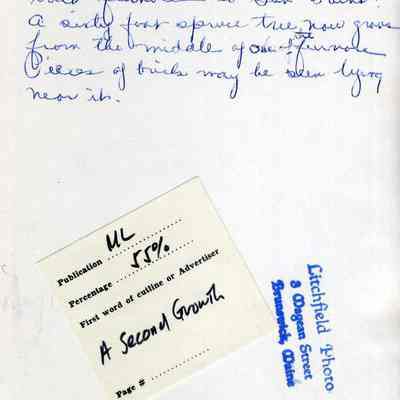 A sixty foot spruce tree now grows
from the middle of one the furnace
Pieces of brick may be seen lying
near it.
Publication ML
Percentage 55%
First word of cutline or Advertiser
A Second Growth
Page #
Litchfield Photo
8 Dugean Street
Brunswick, Maine